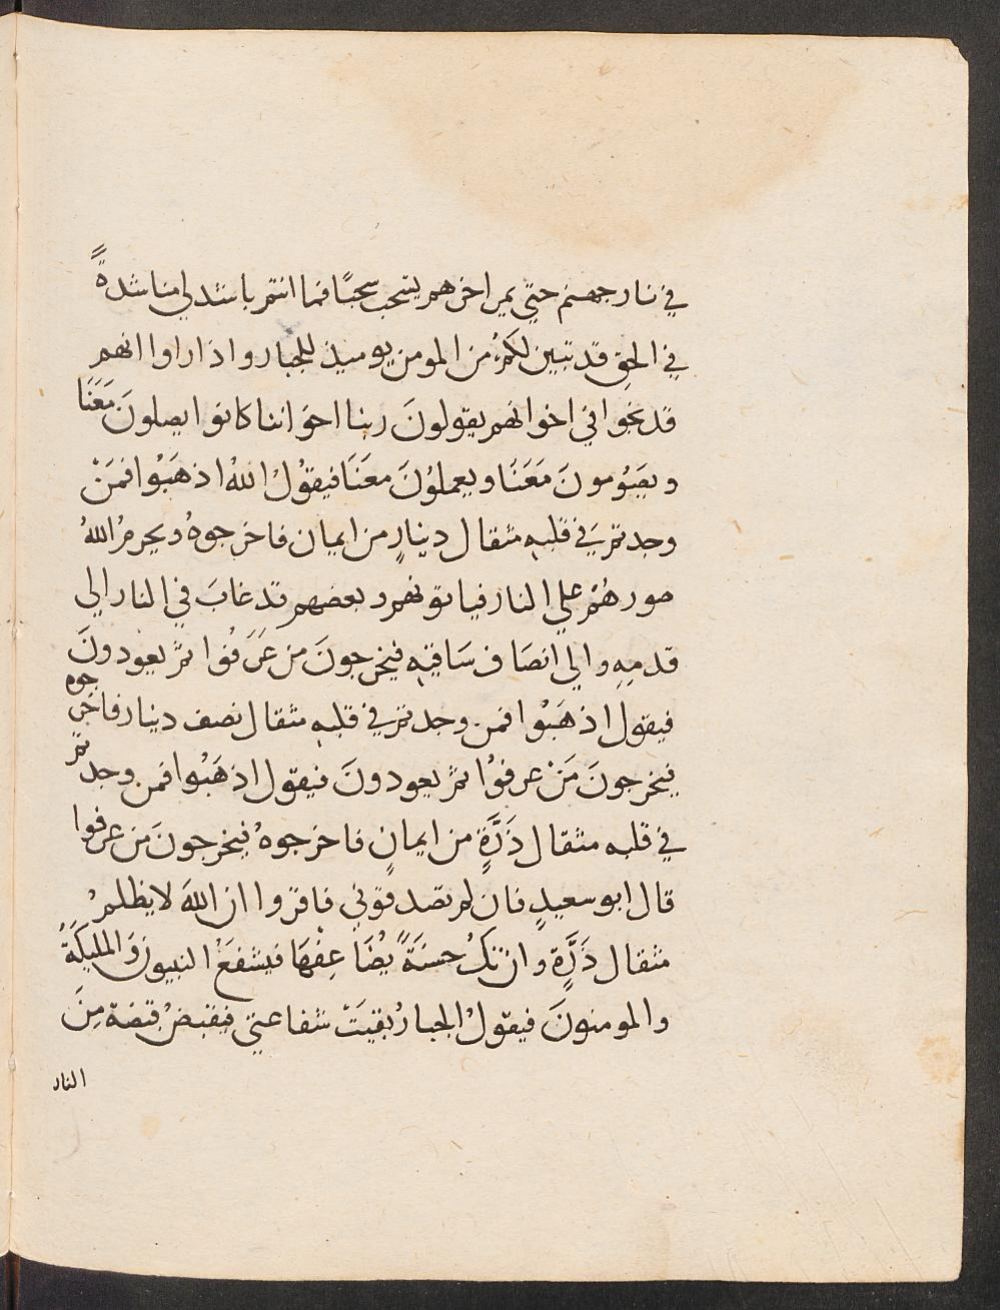 في نار جهنم حتي يمر اخرهم يسحب سحبًا فما انتم باشد لي مناشدةً
في الحق قد تبين لكم من المومن يوميذ للجبار واذا راوا انهم
قد نجوا في اخوانهم يقولونَ ربنا اخواننا كانوا يصلونَ مَعَنَا
ويصُومونَ مَعَنَا ويعملوُنَ معَنَا فيقوُلُ اللهُ اذهَبُوا فمَنْ
وجدتم في قلبهِ مثقال دينارٍ من ايمان فاخرجوهُ ويحرمُ اللهُ
صورهُمْ علي النار فياتونهم وبعضهم قد غابَ في النار الي
قدمِهِ والي انصَاف سَاقيهِ فيخرجونَ من عَرَفُوا ثمّ يعودونَ
فيقول اذهَبُوا فمن وجدتم في قلبهِ مثقال نصف دينار فاخرجوه
فيخرجونَ مَنْ عرفوُا ثمّ يعودونَ فيقول اذهَبُوا فمن وجدتم
في قلبه مثقال ذَرَّةٍ من ايمانٍ فاخرجوهُ فيخرجونَ من عرفوا
قال ابو سعيدٍ فان لم تصدقوني فاقروا ان اللهَ لا يظلمُ
مثقال ذَرَّةٍ وان تكُ حسنَةً يُضَاعِفْهَا فيشفعُ النبيون وَالمليكَةُ
والمومنونَ فيقولُ الجبارُ بقيَتْ شفاعتي فيقبضُ قبضة مِنَ
النار